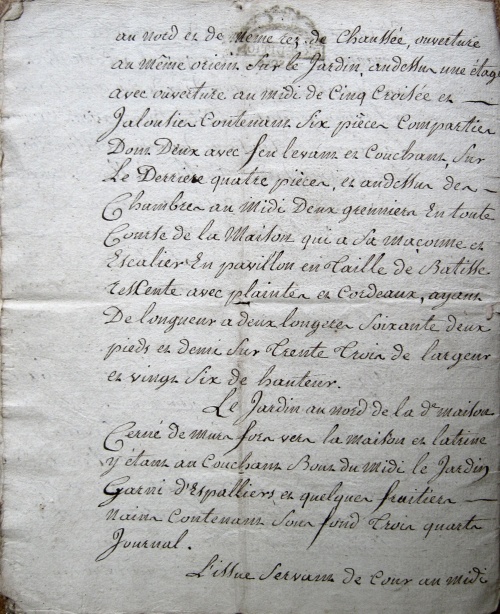 au nord et de même rez de Chaussée, ouverture
au même orient sur le Jardin, audessu une étag
avec ouverture au midi de Cinq Croisée et —
Jalousier Contenant Six pièces Compartier
Dont Deux avec feu levant et Couchant, Sur
Le Derriere quatre pièces, et audessus des —
Chambres au Midi Deux grenniers En toute
Course de la Maison qui a Sa maçonne et
Escalier En pavillon en Taille de Batisse
reSCente avec plaintes et Cordeaux, ayant
De longueur a deux longeres Soixante deux
pieds et demi Sur Trente Trois de largeur
et vingt Six de hauteur.
Le Jardin au nord de la de maison
Cerné de murs fors vers la maison et latrine
y étant au Couchant Bout du midi le Jardin
Garni d'Espalliers et quelques fruitiers —
nains Contenant Sous fond Trois quarts
Journal.
L'issue Servant de Cour au midi